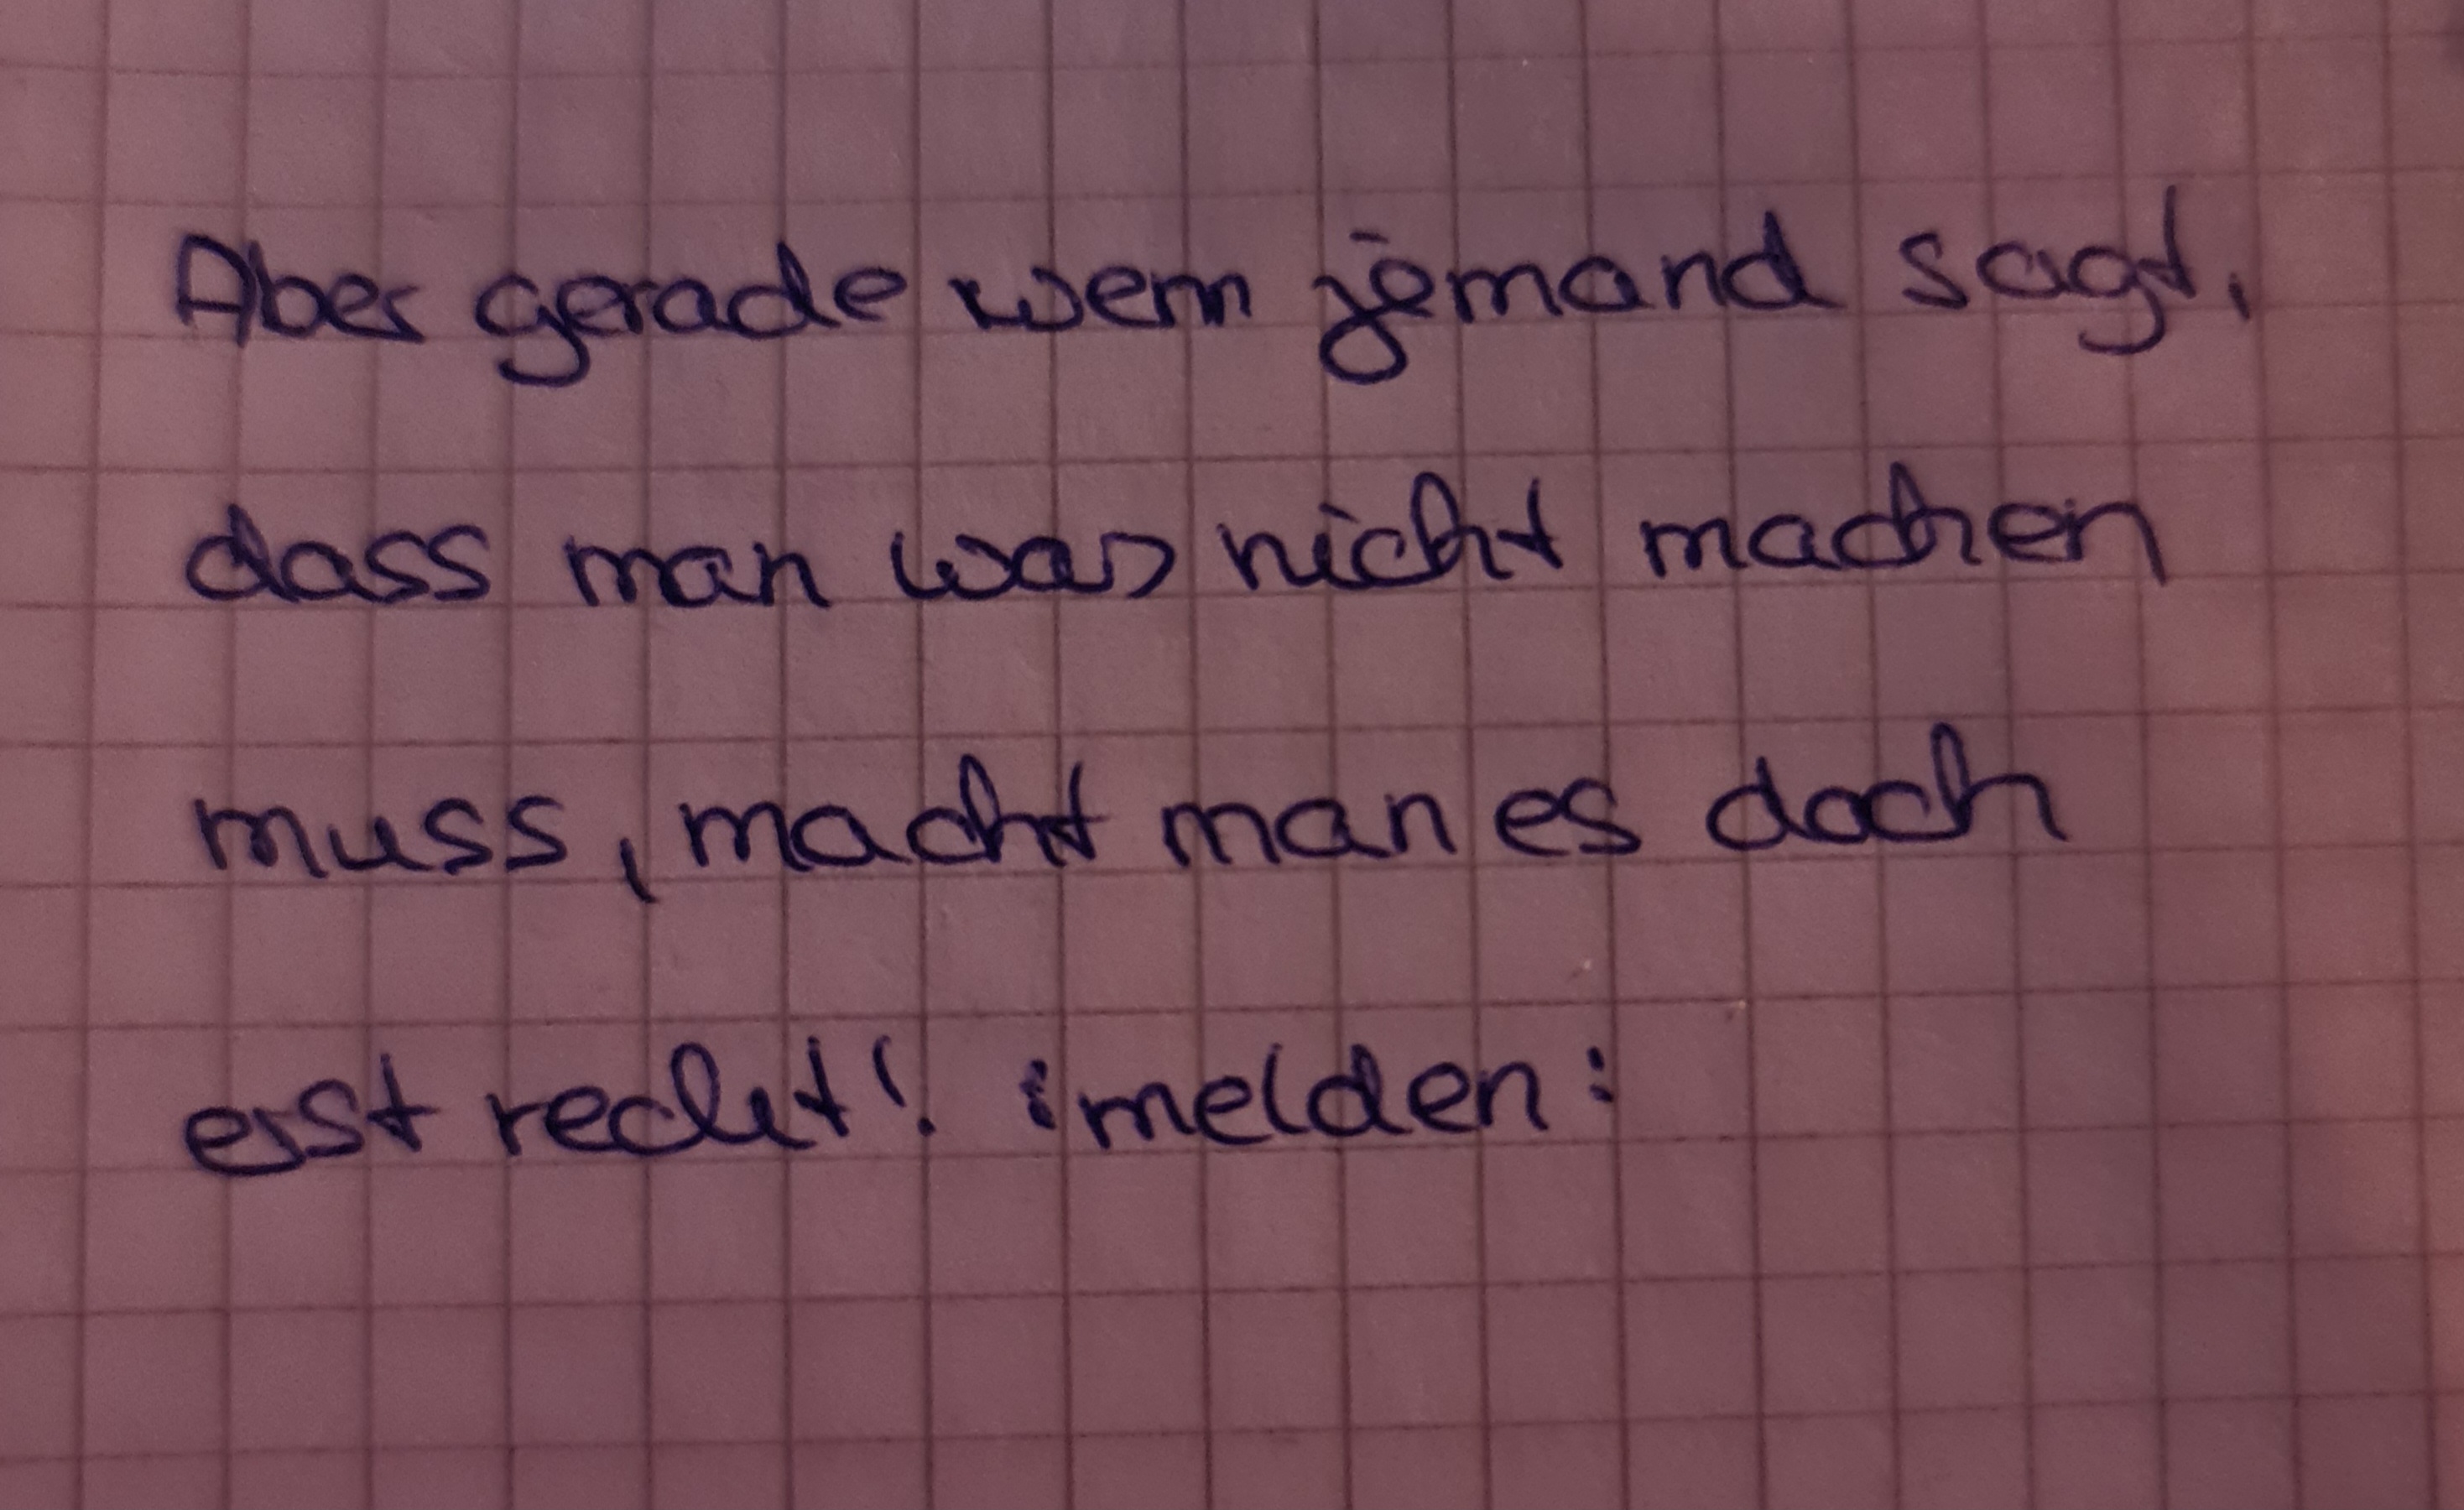 Aber gerade wenn jemand sagt,
dass man was nicht machen
muss, macht man es doch
erst recht! :melden: